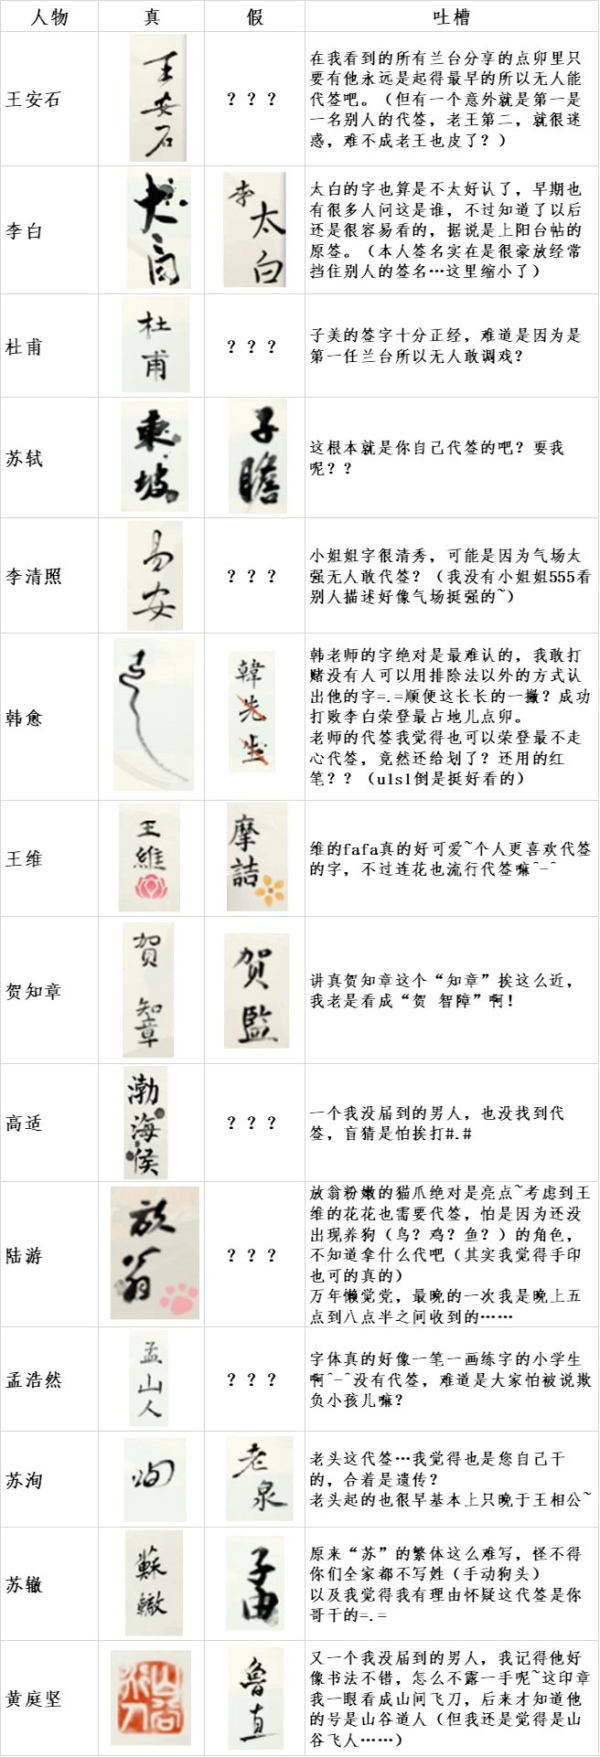 人物 真 假 吐槽
王安石
王安石
？？？
在我看到的所有兰台分享的点卯里只
要有他永远是起得最早的所以无人能
代签吧。（但有一个意外就是第一是
一名别人的代签，老王第二，就很迷
惑，难不成老王也皮了？）
李白
太白
李太白
太白的字也算是不太好认了，早期也
有很多人问这是谁，不过知道了以后
还是很容易看的，据说是上阳台帖的
原签。（本人签名实在是很豪放经常
挡住别人的签名…这里缩小了）
杜甫
杜甫
？？？
子美的签字十分正经，难道是因为是
第一任兰台所以无人敢调戏？
苏轼
東坡
子瞻
这根本就是你自己代签的吧？要我
呢？？
李清照
易安
？？？
小姐姐字很清秀，可能是因为气场太
强无人敢代签？（我没有小姐姐555看
别人描述好像气场挺强的~）
韩愈
韓先生
韩老师的字绝对是最难认的，我敢打
赌没有人可以用排除法以外的方式认
出他的字=.=顺便这长长的一撇？成功
打败李白荣登最占地儿点卯。
老师的代签我觉得也可以荣登最不走
心代签，竟然还给划了？还用的红
笔？？（ulsl倒是挺好看的）
王维
王維
摩詰
维的fafa真的好可爱~个人更喜欢代签
的字，不过连花也流行代签嘛^-^
贺知章
賀知章
賀監
讲真贺知章这个“知章”挨这么近，
我老是看成“贺 智障”啊！
高适
渤海侯
？？？
一个我没届到的男人，也没找到代
签，盲猜是怕挨打#.#
陆游
放翁
？？？
放翁粉嫩的猫爪绝对是亮点~考虑到王
维的花花也需要代签，怕是因为还没
出现养狗（鸟？鸡？鱼？）的角色，
不知道拿什么代吧（其实我觉得手印
也可的真的）
万年懒觉党，最晚的一次我是晚上五
点到八点半之间收到的……
孟浩然
孟山人
？？？
字体真的好像一笔一画练字的小学生
啊^-^没有代签，难道是大家怕被说欺
负小孩儿嘛？
苏洵
洵
老泉
老头这代签…我觉得也是您自己干
的，合着是遗传？
老头起的也很早基本上只晚于王相公~
苏辙
蘇轍
子由
原来“苏”的繁体这么难写，怪不得
你们全家都不写姓（手动狗头）
以及我觉得我有理由怀疑这代签是你
哥干的=.=
黄庭坚
魯直
又一个我没届到的男人，我记得他好
像书法不错，怎么不露一手呢~这印章
我一眼看成山间飞刀，后来才知道他
的号是山谷道人（但我还是觉得是山
谷飞人……）